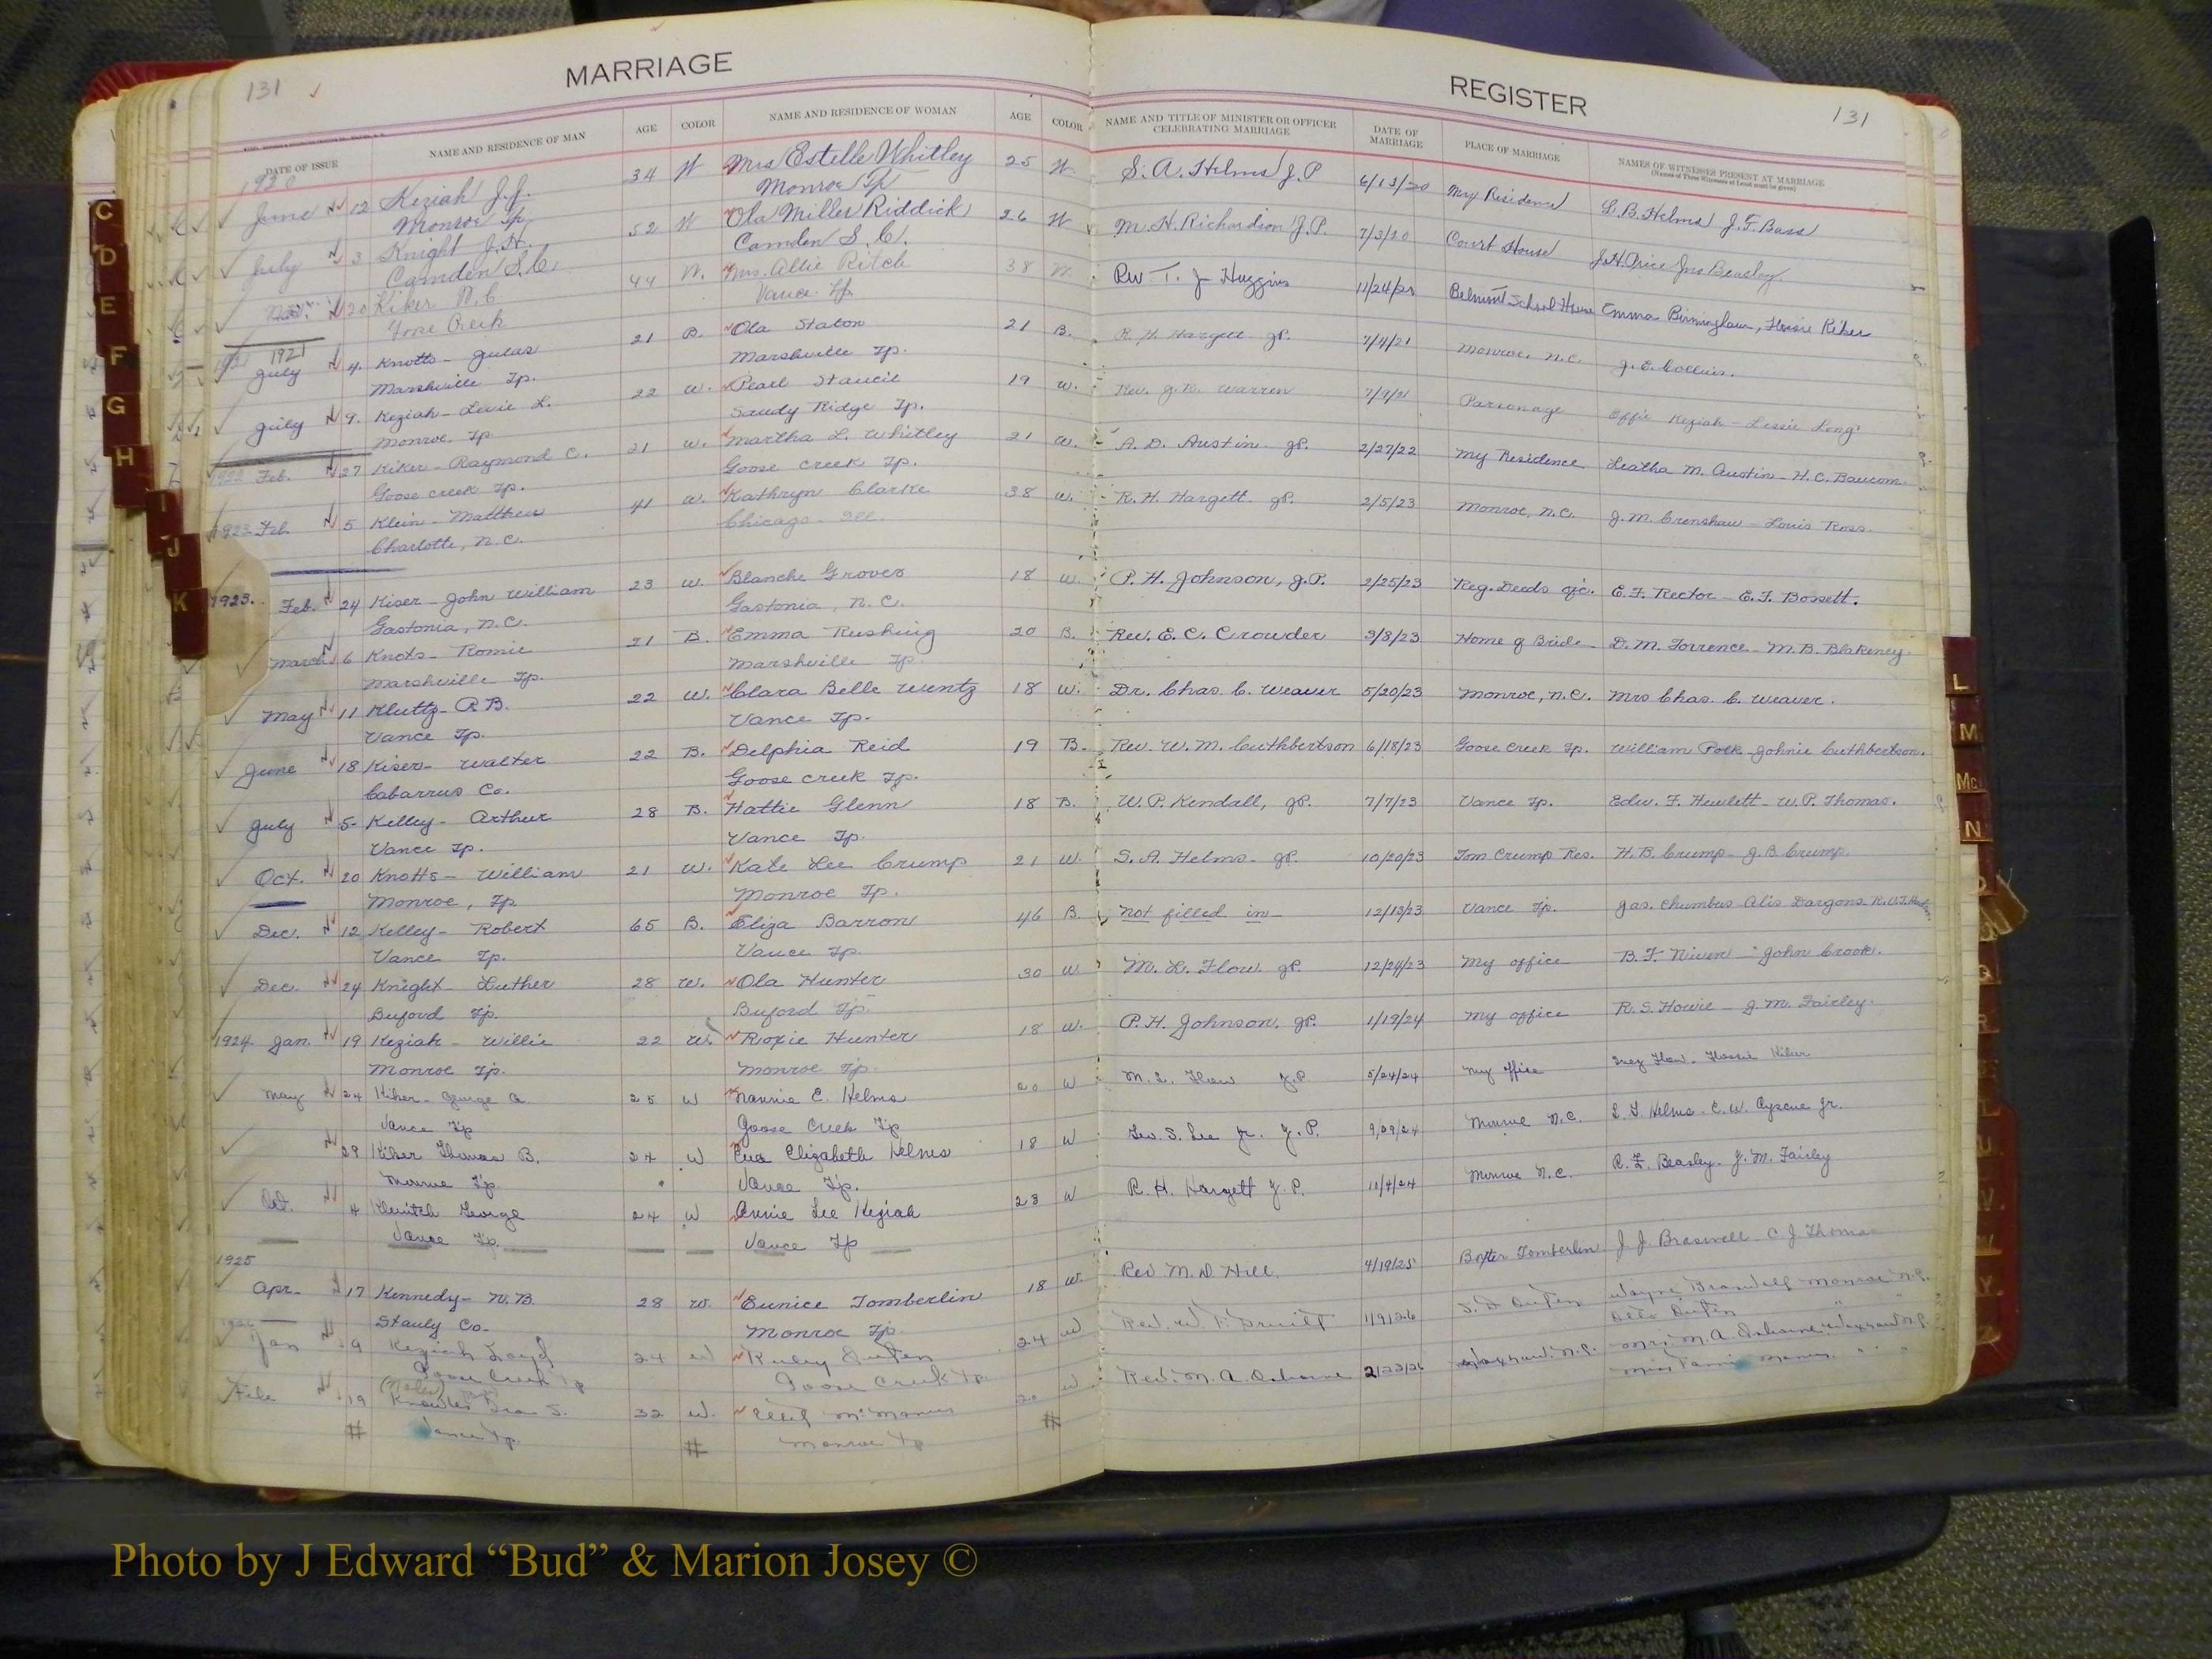 131
MARRIAGE
REGISTER
131
DATE OF ISSUE NAME AND RESIDENCE OF MAN AGE COLOR NAME AND RESIDENCE OF WOMAN AGE COLOR NAME AND TITLE OF MINISTER OR OFFICER CELEBRATING MARRIAGE DATE OF MARRIAGE PLACE OF MARRIAGE NAMES OF WITNESSES PRESENT AT MARRIAGE
(Names of Three Witnesses at Least must be given)
1920
June 12 Keziah J.J. 34 W Mrs Estelle Whitley 25 W S. A. Helms J.P 6/13/20 My Residence L.B. Helms J.F. Bass
Monroe Tp. Monroe Tp
July 3 Knight J.H. 52 W Ola Miller Riddick 26 W M. H. Richardson J.P. 7/3/20 Court House J.H. Price Jno Beasley
Camden S.C. Camden S.C.
Nov. 20 Kiker W.C 44 W. Mrs. Allie Ritch 38 W. Rev T. J Huggins 11/24/20 Belmont School House Emma Birmingham, Flossie Kiker
Goose Creek Vance Tp.
1921
July 4. Knotts - Julas 21 B. Ola Staton 21 B. R. H. Hargett JP. 7/4/21 Monroe, N.C. J. E. Collins.
Marshville Tp. Marshville Tp.
July 9. Keziah - Levie L. 22 W. Pearl Stancil 19 W. Rev. J. R. Warren 7/9/21 Parsonage Effie Keziah - Lessie Long
Monroe Tp Sandy Ridge Tp.
1922 Feb. 27 Kiker - Raymond C. 21 W. Martha L. Whitley 21 W. A. D. Austin JP. 2/27/22 My Residence Leatha M. Austin - H.C. Baucom
Goose Creek Tp. Goose Creek Tp.
1923 Feb. 5 Klein - Matthew 41 W. Kathryn Clarke 38 W. R. H. Hargett JP. 2/5/23 Monroe, N.C. J. M. Crenshaw - Louis Ross.
Charlotte, N.C. Chicago - Ill.
1923. Feb. 24 Kiser - John William 23 W. Blanche Grover 18 W. P. H. Johnson, J.P. 2/25/23 Reg. Deeds ofc. E. F. Rector - E. F. Bossett.
Gastonia, N.C. Gastonia, N.C.
March 6 Knots - Romie 21 B. Emma Rushing 20 B. Rev. E. C. Crowder 3/8/23 Home of Bride D. M. Torrence - M. B. Blakeney
Marshville Tp. Marshville Tp.
May 11 Kluttz - R B. 22 W. Clara Belle Wentz 18 W. Dr. Chas. C. Weaver 5/20/23 Monroe, N.C. Mrs Chas. C. Weaver.
Vance Tp. Vance Tp.
June 18 Kiser - Walter 22 B. Delphia Reid 19 B. Rev. W. M. Cuthbertson 6/18/23 Goose Creek Tp. William Polk - Johnie Cuthbertson.
Cabarrus Co. Goose Creek Tp.
July 5- Kelley - Arthur 28 B. Hattie Glenn 18 B. W. P. Kendall, JP. 7/7/23 Vance Tp. Edw. F. Hewlett - W. P. Thomas.
Vance Tp. Vance Tp.
Oct. 20 Knotts - William 21 W. Kate Lee Crump 21 W. S. A. Helms - JP. 10/20/23 Tom Crump Res. H. B. Crump - J. B. Crump.
Monroe, Tp. Monroe Tp.
Dec. 12 Kelley - Robert 65 B. Eliza Barron 46 B. Not filled in 12/13/23 Vance Tp.
Vance Tp. Vance Tp.
Dec. 24 Knight - Luther 28 W. Ola Hunter 30 W M. L. Flow JP. 12/24/23 My office B. F. Niven - John Crook.
Buford Tp. Buford Tp.
1924 Jan. 19 Keziah - Willie 22 W. Roxie Hunter 18 W. P. H. Johnson, JP. 1/19/24 My office R. S. Howie - J. M. Fairley.
Monroe Tp. Monroe Tp.
May 24 Kiker - George A. 25 W Nannie E. Helms 20 W M. L. Flow J.P 5/24/24 My office Inez Flow - Flossie Kiker
Vance Tp Goose Creek Tp
29 Kiker Thomas B. 24 W Eva Elizabeth Helms 18 W Geo. S. Lee Jr. J.P. 9/29/24 Monroe N.C. L. F. Helms - C. W. Ayscue Jr.
Monroe Tp. Vance Tp.
Oct. 4 George 24 W Annie Lee Keziah 28 W R. H. Hargett J.P. 11/4/24 Monroe N.C. R. F. Beasley - J. M. Fairley
Vance Tp. Vance Tp
1925
Apr. 17 Kennedy - W. B. 28 W. Eunice Tomberlin 18 W. Rev M. D. Hill. 4/19/25 Tomberlin J. J. Braswell - C J Thomas
Stanly Co. Monroe Tp.
Jan 9 Keziah Loyd 24 W Ruby 24 W Rev. W. F. Pruitt 1/9/26 Wayne Braswell Monroe N.C.
Goose Creek Tp Goose Creek Tp
19 Knowles S. 32 W. McManus 20 W Rev. M. A. Osborne 2/22/26 Waxhaw N.C. Mrs. M. A. Osborne Waxhaw N.C.
Vance Tp. Monroe Tp
C
D
E
F
G
H
I
J
K
L
M
Mc
N
Q
R
U
Y
Photo by J Edward “Bud” & Marion Josey ©